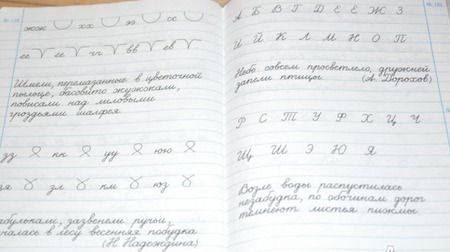 жж хх ээ сс
ее ее чч вв ев
Шмели, перемазанные в цветочной
пыльце, басовито жужжали,
повисали над лиловыми
гроздьями шалфея
зз пк уу юю
зл пм юз
забулькали, зазвенели ручьи,
началась в лесу весенняя побудка
(Н. Надеждина)
А Б В Г Д Е Ё Ж З
И Й К Л М Н О П
Небо совсем просветлело, дружней
запели птицы (А. Дорохов)
Р С Т У Ф Х Ц Ч
Щ Ш Э Ю Я
Возле воды распустилась
незабудка, по обочинам дорог
темнеют листья пижмы